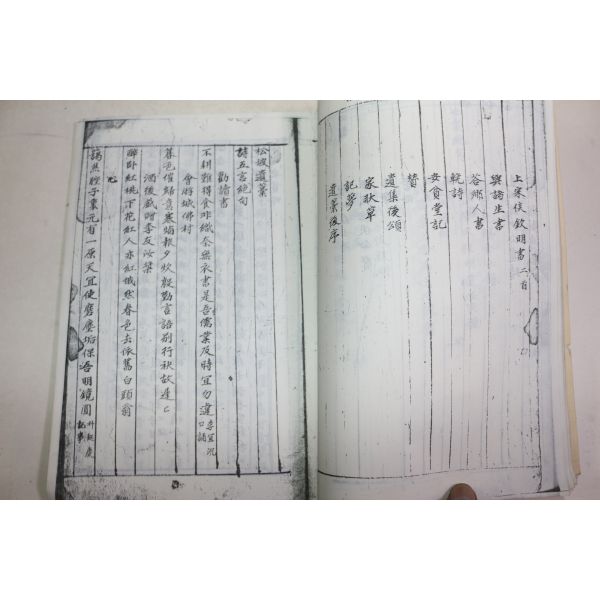 上宋侯欽明書 二首
與諸生書
答鄉人書
輓詩
安貧堂記
贊
遺集後頌
家狀草
記夢
遺藁後序
松坡遺藁
詩五言絶句
勸讀書
不耕難得食非織奈無衣書是吾儒業及時宜勿違
會將城佛村
暮色催歸意寒烟報夕炊凝勤言語別行袂故遲〻
酒後戲贈李友汝
醉卧紅桃下花紅人亦紅悠然春色去依舊白頭翁
元有一原天宜使磨塵垢保吾明鏡圓